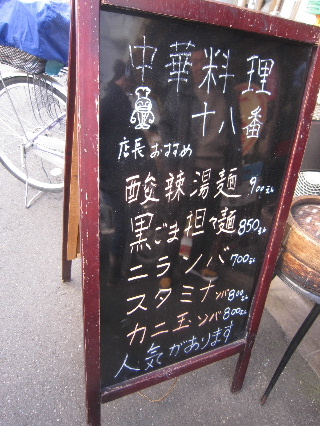 中華料理
十八番
店長おすすめ
酸辣湯麺 900えん
黒ごま担々麺 850えん
ニランバ 700えん
スタミナンバ 800えん
カニ玉ンバ 800えん
人気があります